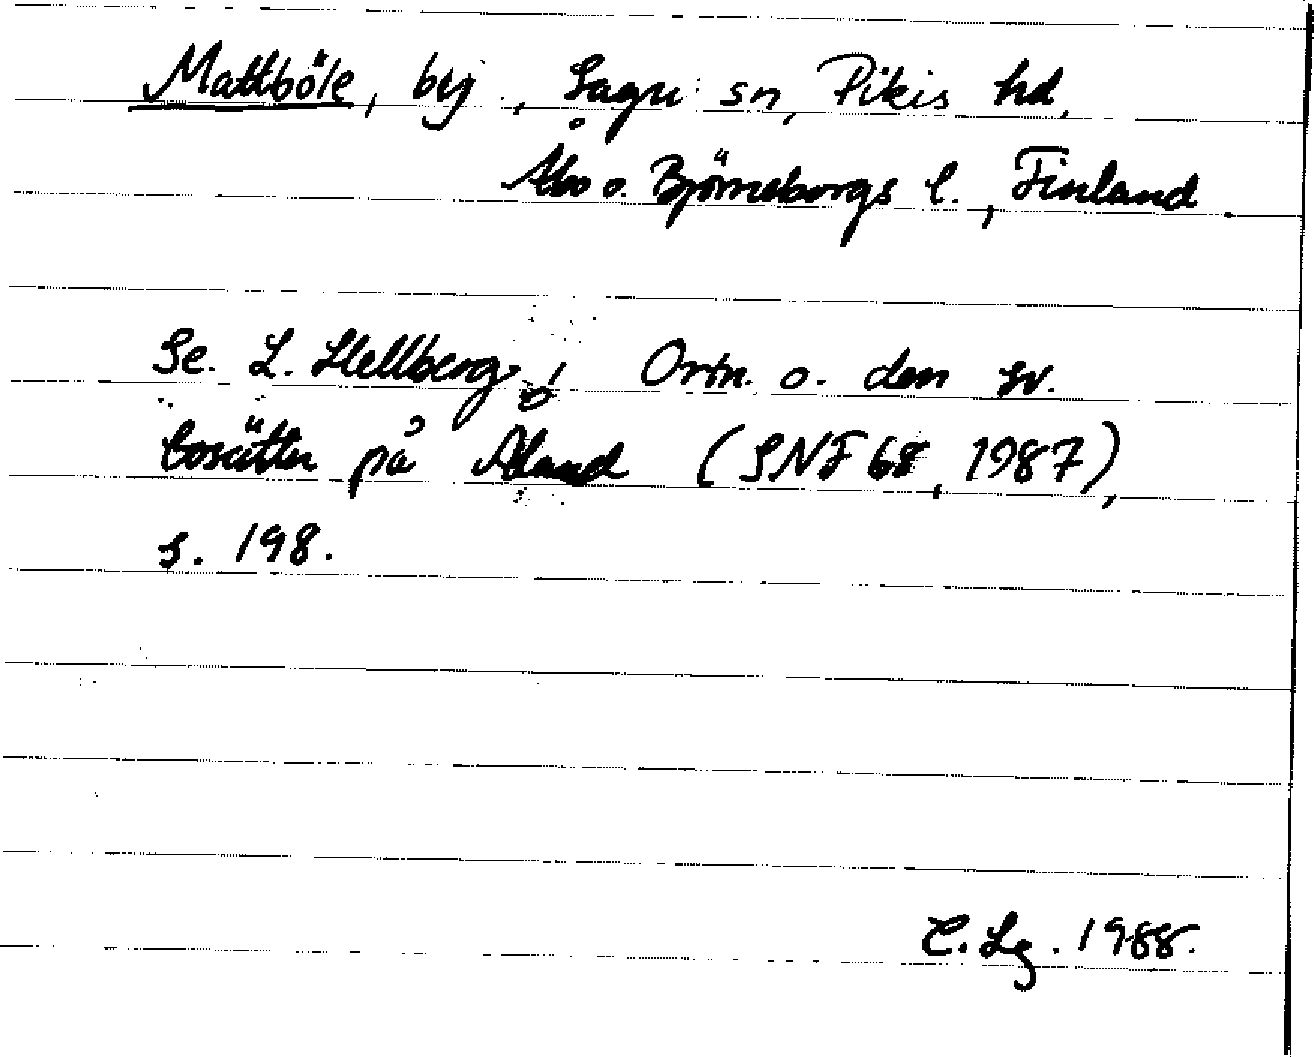 Mattböle, by, Sagu sn, Pikis hd,
Åbo o. Björneborgs l., Finland.
Se. L. Hellberg, Ortn. o. den sv.
bosättn på Åland (SNF 68, 1987),
s. 198.
C. Lg. 1988.